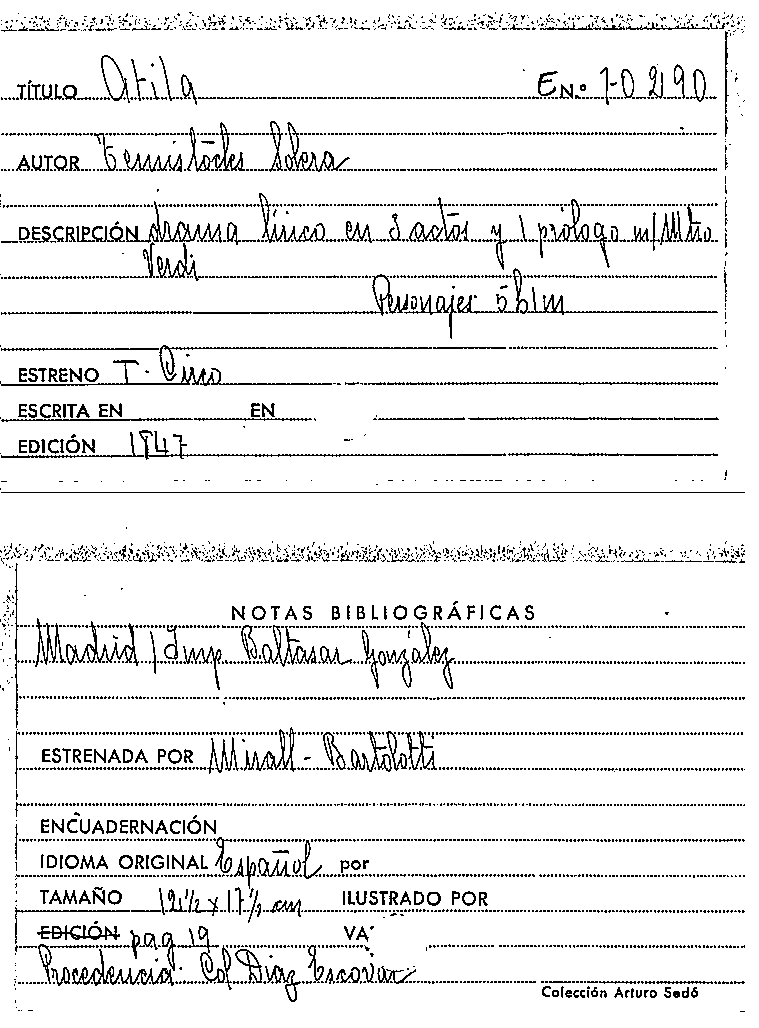 TÍTULO Atila EN.º 1-02190
AUTOR Temistócles Solera
DESCRIPCIÓN drama lírico en 3 actos y 1 prólogo m/Mtro
Verdi
Personajes 5h1m
ESTRENO T. Circo
ESCRITA EN EN
EDICIÓN 1847
NOTAS BIBLIOGRÁFICAS
Madrid / Imp Baltasar González
ESTRENADA POR Mirall - Bartolotti
ENCUADERNACIÓN
IDIOMA ORIGINAL Español por
TAMAÑO 12½ x 17½ cm ILUSTRADO POR
EDICIÓN pag 19 VA
Procedencia: Col Díaz Escovar
Colección Arturo Sedó